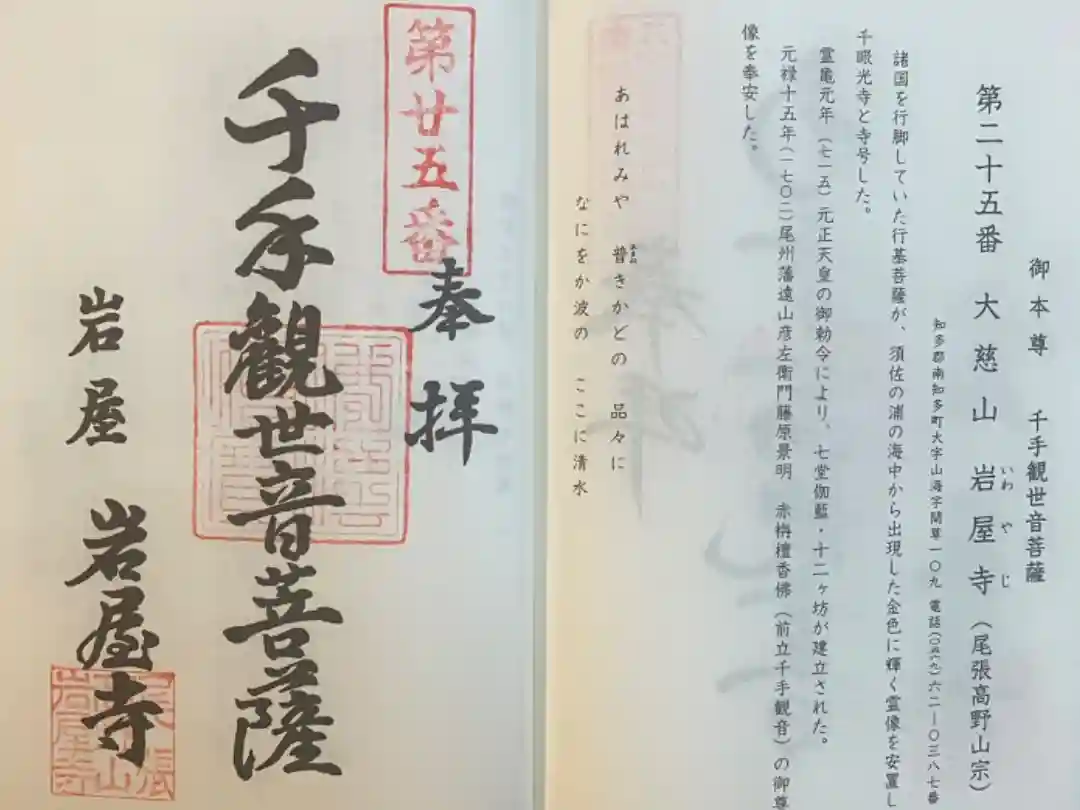 御本尊 千手観世音菩薩
いわやじ
第二十五番 大慈山 岩屋寺（尾張高野山宗）
知多郡南知多町大字山海字間草一〇九 電話(〇五六九)六二―〇三八七番
諸国を行脚していた行基菩薩が、須佐の浦の海中から出現した金色に輝く霊像を安置し
千眼光寺と寺号した。
霊亀元年（七一五）元正天皇の御勅令により、七堂伽藍・十二ヶ坊が建立された。
元禄十五年(一七〇二)尾州藩遠山彦左衛門藤原景明 赤栴檀香佛（前立千手観音）の御尊
像を奉安した。
あまね
あはれみや 普きかどの 品々に
なにをか波の ここに清水
第廿五番
奉拝
千手観世音菩薩
岩屋 岩屋寺
岩屋寺